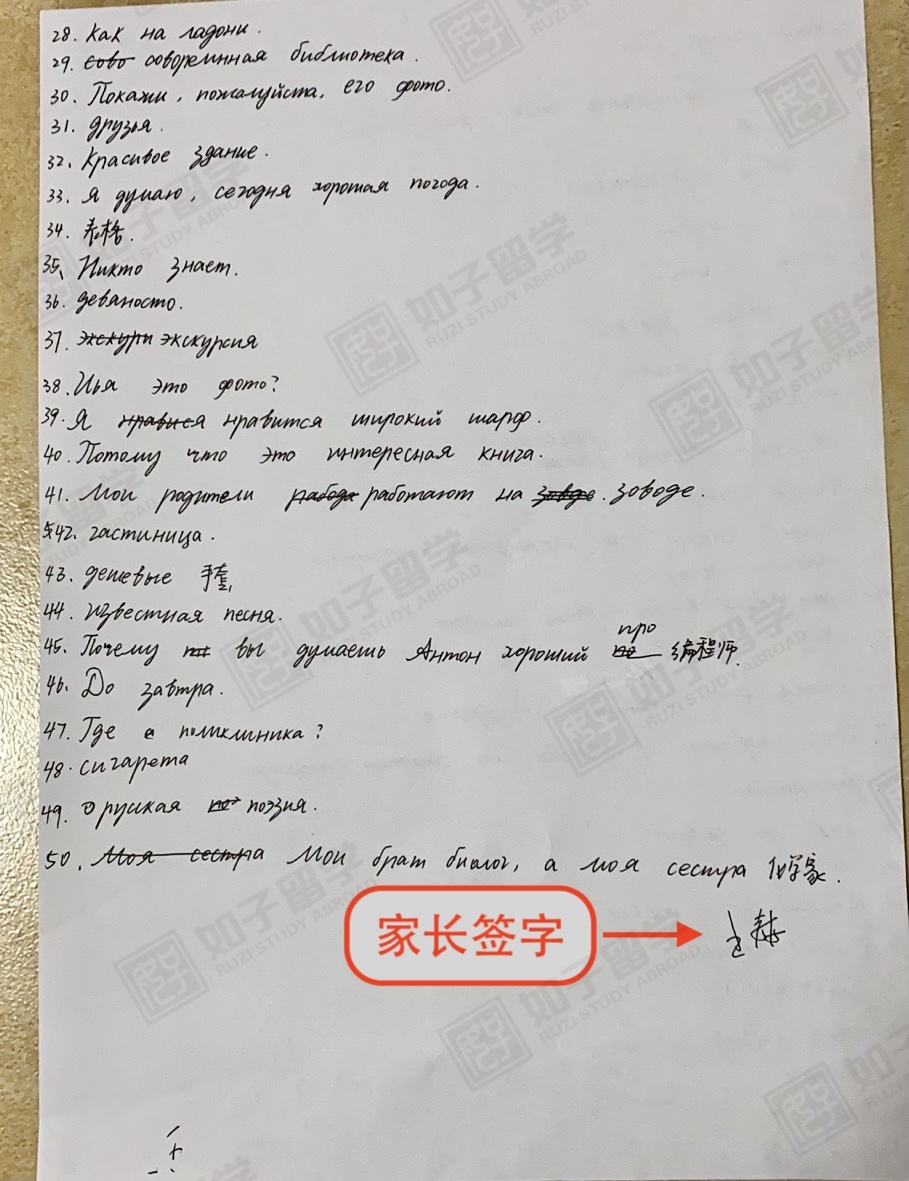 28. Как на ладони.
29. сово соворемнная библиотека.
30. Покажи, пожалуйста, его фото.
31. друзья.
32. Красивое здание.
33. Я думаю, сегодня хорошая погода.
34. 表格.
35. Никто знает.
36. деваносто.
37. экскури экскурсия
38. Чья это фото?
39. Я нравися нравится широкий шарф.
40. Потому что это интересная книга.
41. Мои родители работают на зоводе.
42. гастиница.
43. дешевые 手套,
44. известная песня.
45. Почему вы думаешь Антон хороший про 编程师.
46. До завтра.
47. Где поликлиника?
48. сигарета
49. руская поэзия.
50. Моя сестра Мои брат биолог, а моя сестра 化学家.
家长签字
如子留学
RUZI STUDY ABROAD